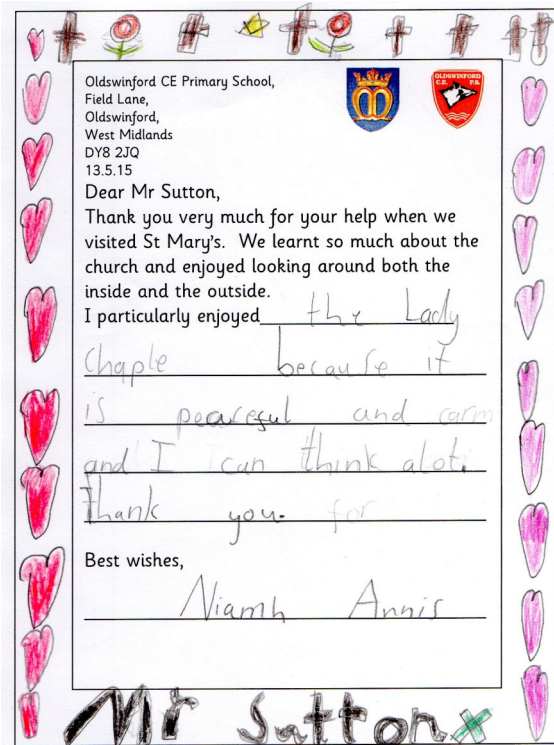 OLDSWINFORD
C.E. P.S.
Oldswinford CE Primary School,
Field Lane,
Oldswinford,
West Midlands
DY8 2JQ
13.5.15
Dear Mr Sutton,
Thank you very much for your help when we
visited St Mary's. We learnt so much about the
church and enjoyed looking around both the
inside and the outside.
I particularly enjoyed the Lady
Chaple because it
is peareful and carm
and I can think alot.
Thank you. for
Best wishes,
Niamh Annis
Mr Sutton x